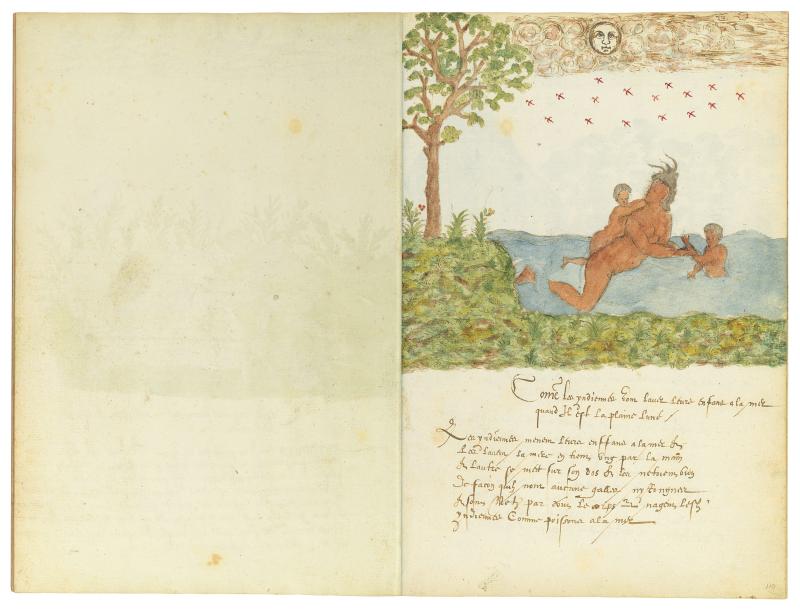 Comē Les yndiennes vont laver leurs enfans a la mer
quand Il est La plaine lune
Les yndiennes menent leurs enffans a la mer &
Les Lavent la mere en tient ung par la main
& lautre se met sur son dos & les netoient bien
de façon quilz nont aucune galle ny Rongne
& sont Netz par tout Le corps nagent lesd
yndiennes Comme poissons a la mer